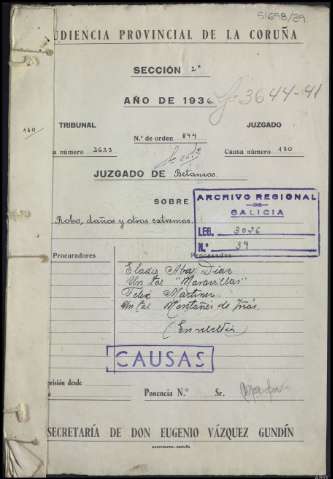 51698/29
UDIENCIA PROVINCIAL DE LA CORUÑA
SECCIÓN 2ª
AÑO DE 1936
3644-41
TRIBUNAL
JUZGADO
N.º de orden 844
a número 2623
Causa número 130
JUZGADO DE Betanzos
SOBRE
Robo, daños y otros extremos
ARCHIVO REGIONAL
DE
GALICIA
LEG. 3026
N.º 39
Procuradores
Procesados
Eladio Díaz
Un tal "Maravillas"
Felix Martinez
Un tal Montañés de
CAUSAS
prisión desde
Ponencia N.º Sr.
SECRETARÍA DE DON EUGENIO VÁZQUEZ GUNDÍN